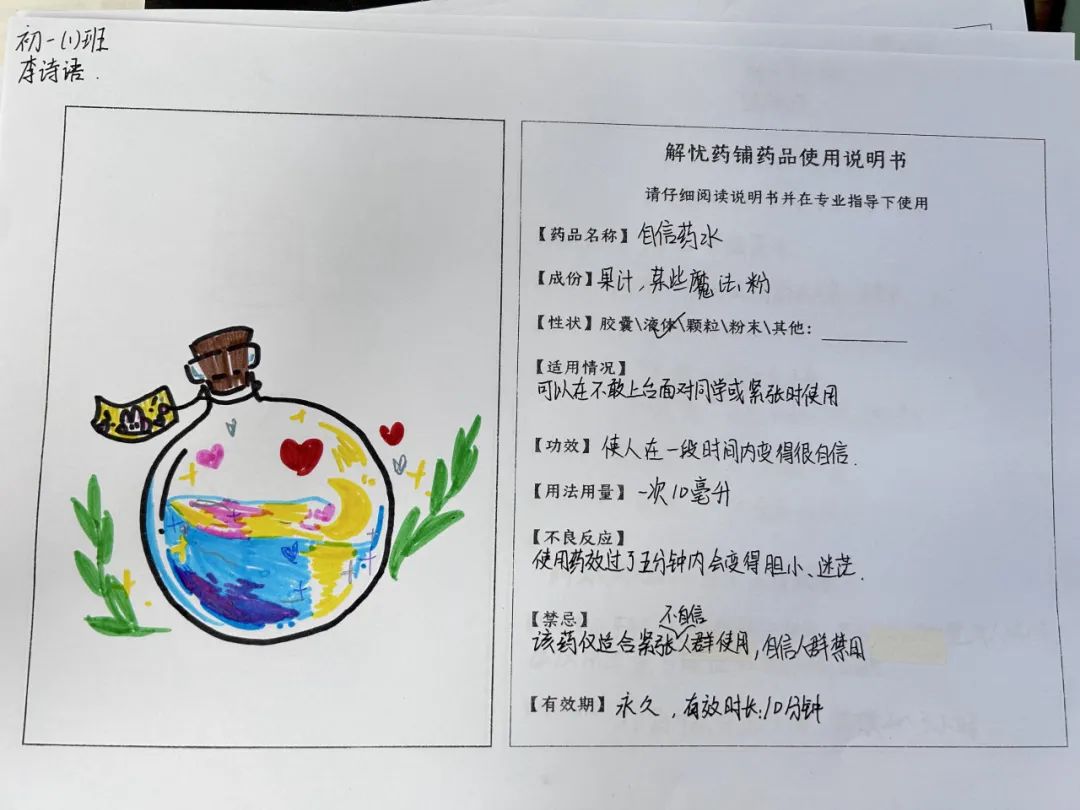 初一(1)班
李诗语.
解忧药铺药品使用说明书
请仔细阅读说明书并在专业指导下使用
【药品名称】自信药水
【成份】果汁,某些魔法粉
【性状】胶囊\液体\颗粒\粉末\其他:
【适用情况】
可以在不敢上台面对同学或紧张时使用
【功效】使人在一段时间内变得很自信.
【用法用量】一次10毫升
【不良反应】
使用药效过了五分钟内会变得胆小、迷茫.
【禁忌】
不自信
该药仅适合紧张人群使用,自信人群禁用
【有效期】永久,有效时长:10分钟